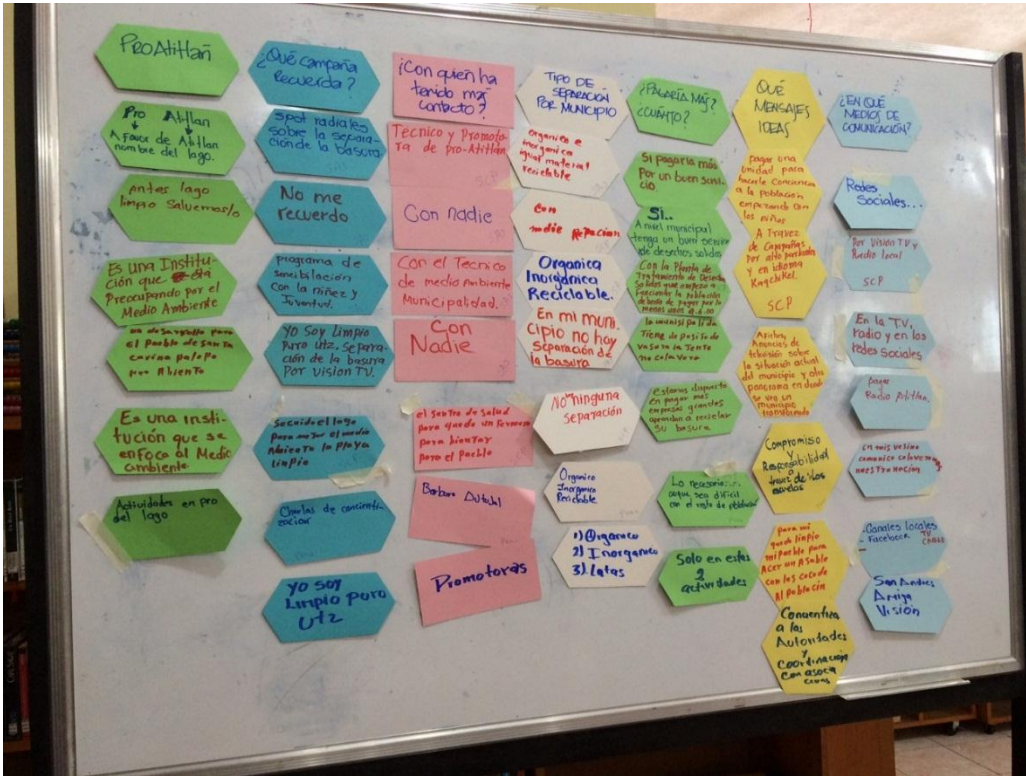 ProAtitlañ
Pro Atitlan
A favor de Atitlan
nombre del lago.
Antes lago
limpio Salvemoslo
Es una Institu-
ción que esta
Preocupando por el
Medio Ambiente
un desarrollo para
el pueblo de santa
catarina palopo
pro Abiento
Es una insti-
tución que se
enfoca al Medio
ambiente
Actividades en pro
del lago
¿Qué campaña
Recuerda?
spot radiales
sobre la separa-
ción de la basura
No me
recuerdo
programa de
sencibilacion
con la niñez y
Juventud.
Yo Soy Limpio
Puro utz, separa-
ción de la basura
Por vision TV.
el lago
para mejor el medio
Abiento la playa
limpio
Charlas de concienti-
zacion
Yo soy
Limpio puro
utz
¿Con quién ha
tenido más
contacto?
Técnico y Promoto-
ra de pro-Atitlán
SCP
Con nadie
Con el Tecnico
de medio ambiente
Municipalidad.
Con
Nadie
el sentro de salud
para quede un
para bientar
para el pueblo
Barbara
Promotoras
TIPO DE
SEPARACIÓN
POR MUNICIPIO
organica e
inorganica
igual material
reciclable
Con
nadie
Organica
Inorgánica
Reciclable.
En mi muni-
cipio no hay
separación de
la basura
No ninguna
separación
Organico
Inorganico
Reciclable
1) Organico
2) Inorganico
3) Latas
¿PAGARÍA MÁS?
¿CUÁNTO?
Si pagaria más
Por un buen servi-
cio.
Si..
A nivel municipal
tenga un buen servicio
de desechos solidos
Con la Planta de
Tratamiento de Desechos
Solidos que empezo a
funcionar la población
deberia de pagar por lo
menos
la munisipalida
Tiene deposito de
vasura la Jente
no colavora
estaria dispuesto
en pagar más
empresas grandes
aprendan a reciclar
su basura
Lo necesario....
aunque sea dificil
con el resto de población
Solo en estas
2
actividades
QUÉ
MENSAJES
IDEAS
pagar una
unidad para
hacerle Conciencia
a la población
empezando con
los niños
A Travez
de Campañas
Por alto parlante
y en idioma
Kaqchikel.
SCP
Afiches,
Anuncios de
televisión sobre
la situación actual
del municipio y otro
panorama en donde
se vea un
municipio
transformado
Compromiso
y
Responsabilidad
a
travez de las
escuelas
para mi
quede limpio
mi pueblo para
Acer un
con los
Al Población
Concientiza
a las
Autoridades
y
coordinacion
con asocia
ciones
¿EN QUÉ
MEDIOS DE
COMUNICACIÓN?
Redes
Sociales...
Por Visión TV y
Radio local
SCP
En la TV,
radio y en los
Redes sociales
pagar
Radio Atitlan.
en mis vesino
comunico
-Canales locales
- Facebook TV
San Andres
Amiga
Visión